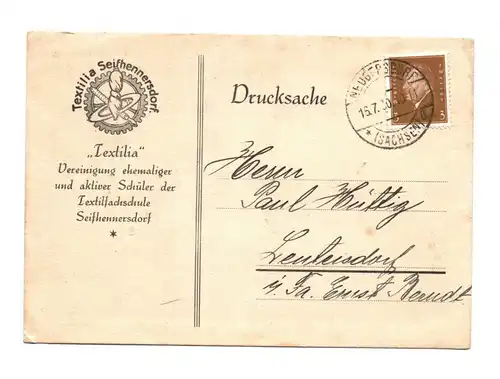 Textilia Seifhennersdorf.
„Textilia"
Vereinigung ehemaliger
und aktiver Schüler der
Textilfachschule
Seifhennersdorf
*
Drucksache
NEUGERSDORF
16.7.30
* (SACHSEN)
3
Herrn
Paul Hüttig
Leutersdorf
i. Fa. Ernst Berndt